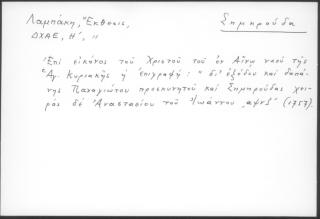 Λαμπάκη, Ἔκθεσις,
Σημηρούδα
ΔΧΑΕ, Η΄, 11
Ἐπί εἰκόνος τοῦ Χριστοῦ τοῦ ἐν Αἴνῳ ναοῦ τῆς
Ἁγ. Κυριακῆς ἡ ἐπιγραφή: "δι' ἐξόδου καί δαπά-
νης Παναγιώτου προσκυνητοῦ καί Σημηρούδας χει-
ρός δέ Ἀναστασίου τοῦ Ἰωάννου ͵αψνζ" (1757).